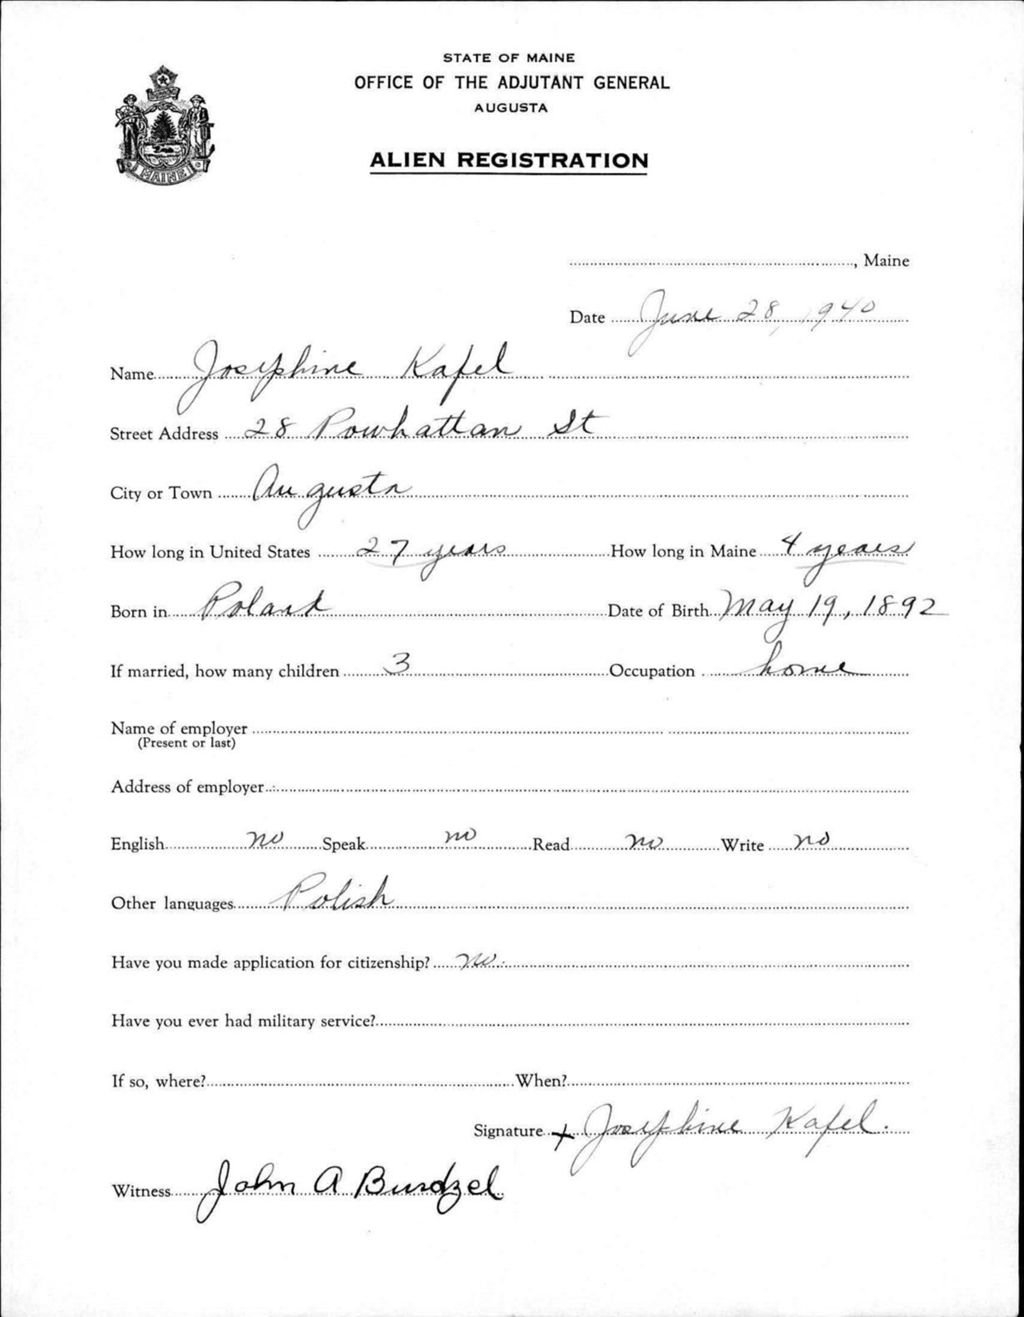 STATE OF MAINE
OFFICE OF THE ADJUTANT GENERAL
AUGUSTA
ALIEN REGISTRATION
MAINE
, Maine
Date June 28, 1940
Name Josephine Kafel
Street Address 28 Powhattan St
City or Town Augusta
How long in United States 27 years How long in Maine 4 years
Born in Poland Date of Birth May 19, 1892
If married, how many children 3 Occupation home
Name of employer
(Present or last)
Address of employer
English no Speak no Read no Write no
Other languages Polish
Have you made application for citizenship? no.
Have you ever had military service?
If so, where? When?
Signature x Josephine Kafel.
Witness John A Burdzel